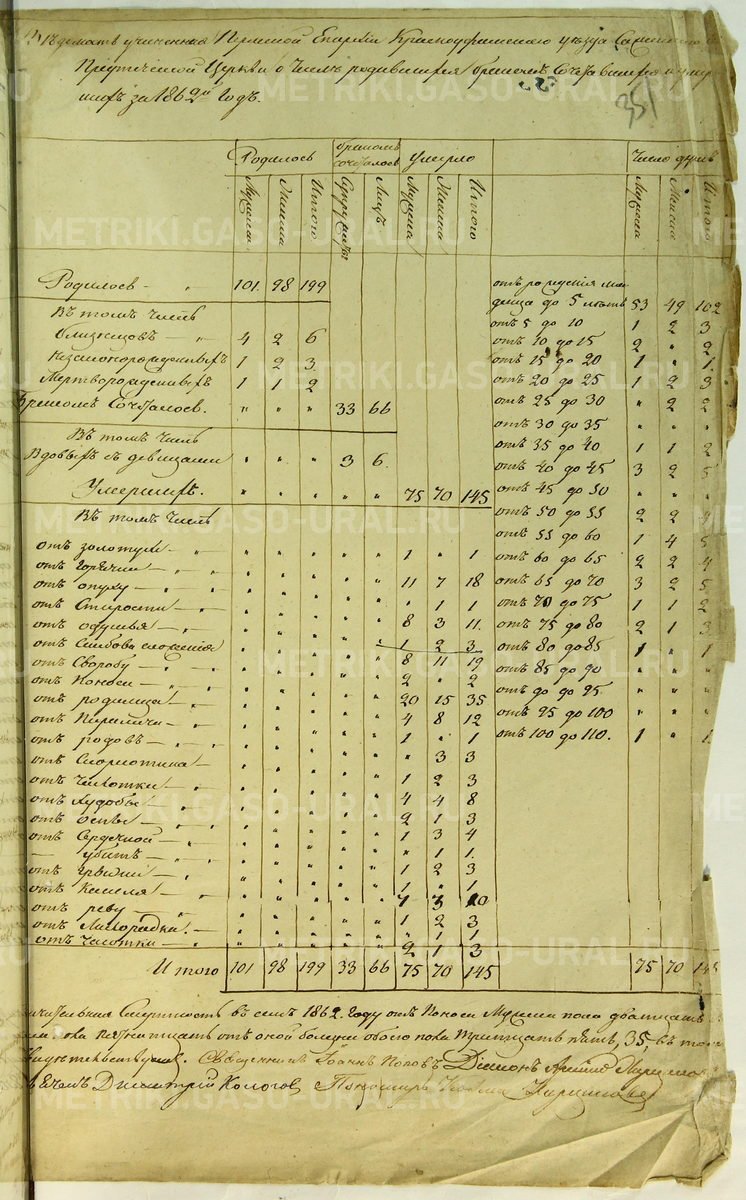 Ведомость учиненная Пермской Епархіи Красноуфимскаго уѣзда
Предтеченской Церкви о числѣ родившихся бракомъ Сочетавшихся и умер
шихъ за 1862й Годъ.
351
Родилось бракомъ сочеталось Умерло Число душъ
Мужска Женска Итого Супружествъ Лицъ Мужска Женска Итого Мужска Женска Итого
Родилось — „ 101. 98 199
отъ рожденія мла
денца до 5 лѣтъ 53 49 102
Въ томъ числѣ
отъ 5 до 10 1 2 3
Близнецовъ — „ 4 2 6
отъ 10 до 15 2 „ 2
Незаконорожденныхъ 1 2 3
отъ 15 до 20 1 „ 1.
Мертворожденныхъ 1 1 2
отъ 20 до 25 1 2 3
Бракомъ Сочеталось. „ „ „ 33 66
отъ 25 до 30 „ 2 2
отъ 30 до 35 „ „ „
Въ томъ числѣ
отъ 35 до 40 1 1 2
Вдовыхъ съ девицами „ „ „ 3 6.
отъ 40 до 45 3 2 5
Умершихъ. „ „ „ „ „ 75 70 145
отъ 45 до 50 „ „ „
Въ томъ числѣ
отъ 50 до 55 2 2
отъ 55 до 60 1 4 5
отъ золотухи — „ 1 „ 1
отъ 60 до 65 2 2 4
отъ Горячки — „ 11 7 18
отъ 65 до 70 3 2 5
отъ опуху — „ „ 1 1
отъ 70 до 75 1 1 2
отъ Старости — „ 8 3 11.
отъ 75 до 80 2 1 3
отъ удушья — „ 1 2 3
отъ 80 до 85 1 „ 1
отъ Слабова сложенія 8 11 19
отъ 85 до 90 „ „ „
отъ Своробу — „ 2 „ 2
отъ 90 до 95 „ „ „
отъ Поноса — „ 20 15 35
отъ 95 до 100 „ „ „
отъ родимца — „ 4 8 12
отъ 100 до 110. 1 „ 1.
отъ 1 „ 1
отъ родовъ — „ „ 3 3
отъ 1 2 3
отъ Чахотки — 4 4 8
отъ Худобы — „ 2 1 3
отъ оспы — „ 1 3 4
отъ Сердечной — „ „ 1 1.
— убитъ — „ 1 2 3
отъ грыжи — „ 1 „ 1
отъ Кашля — „ 7 3 10
отъ реву — „ 1 2 3
отъ Лихорадки. — „ 1 1
отъ Чахотки — „ 2 1 3
Итого 101 98 199 33 66 75 70 145 75 70 145
Смертность въ семъ 1862 году отъ Поноса Мужска пола двадцать
пола пятнатцать отъ оной болезни обоего пола тритцать пять, 35, въ томъ
Священникъ Іоаннъ Поповъ Діаконъ
Димитрій Пономарь Козма
METRIKI.GASO-URAL.RU
METRIKI.GASO-URAL.RU
METRIKI.GASO-URAL.RU
METRIKI.GASO-URAL.RU
METRIKI.GASO-URAL.RU
METRIKI.GASO-URAL.RU
METRIKI.GASO-URAL.RU
METRIKI.GASO-URAL.RU